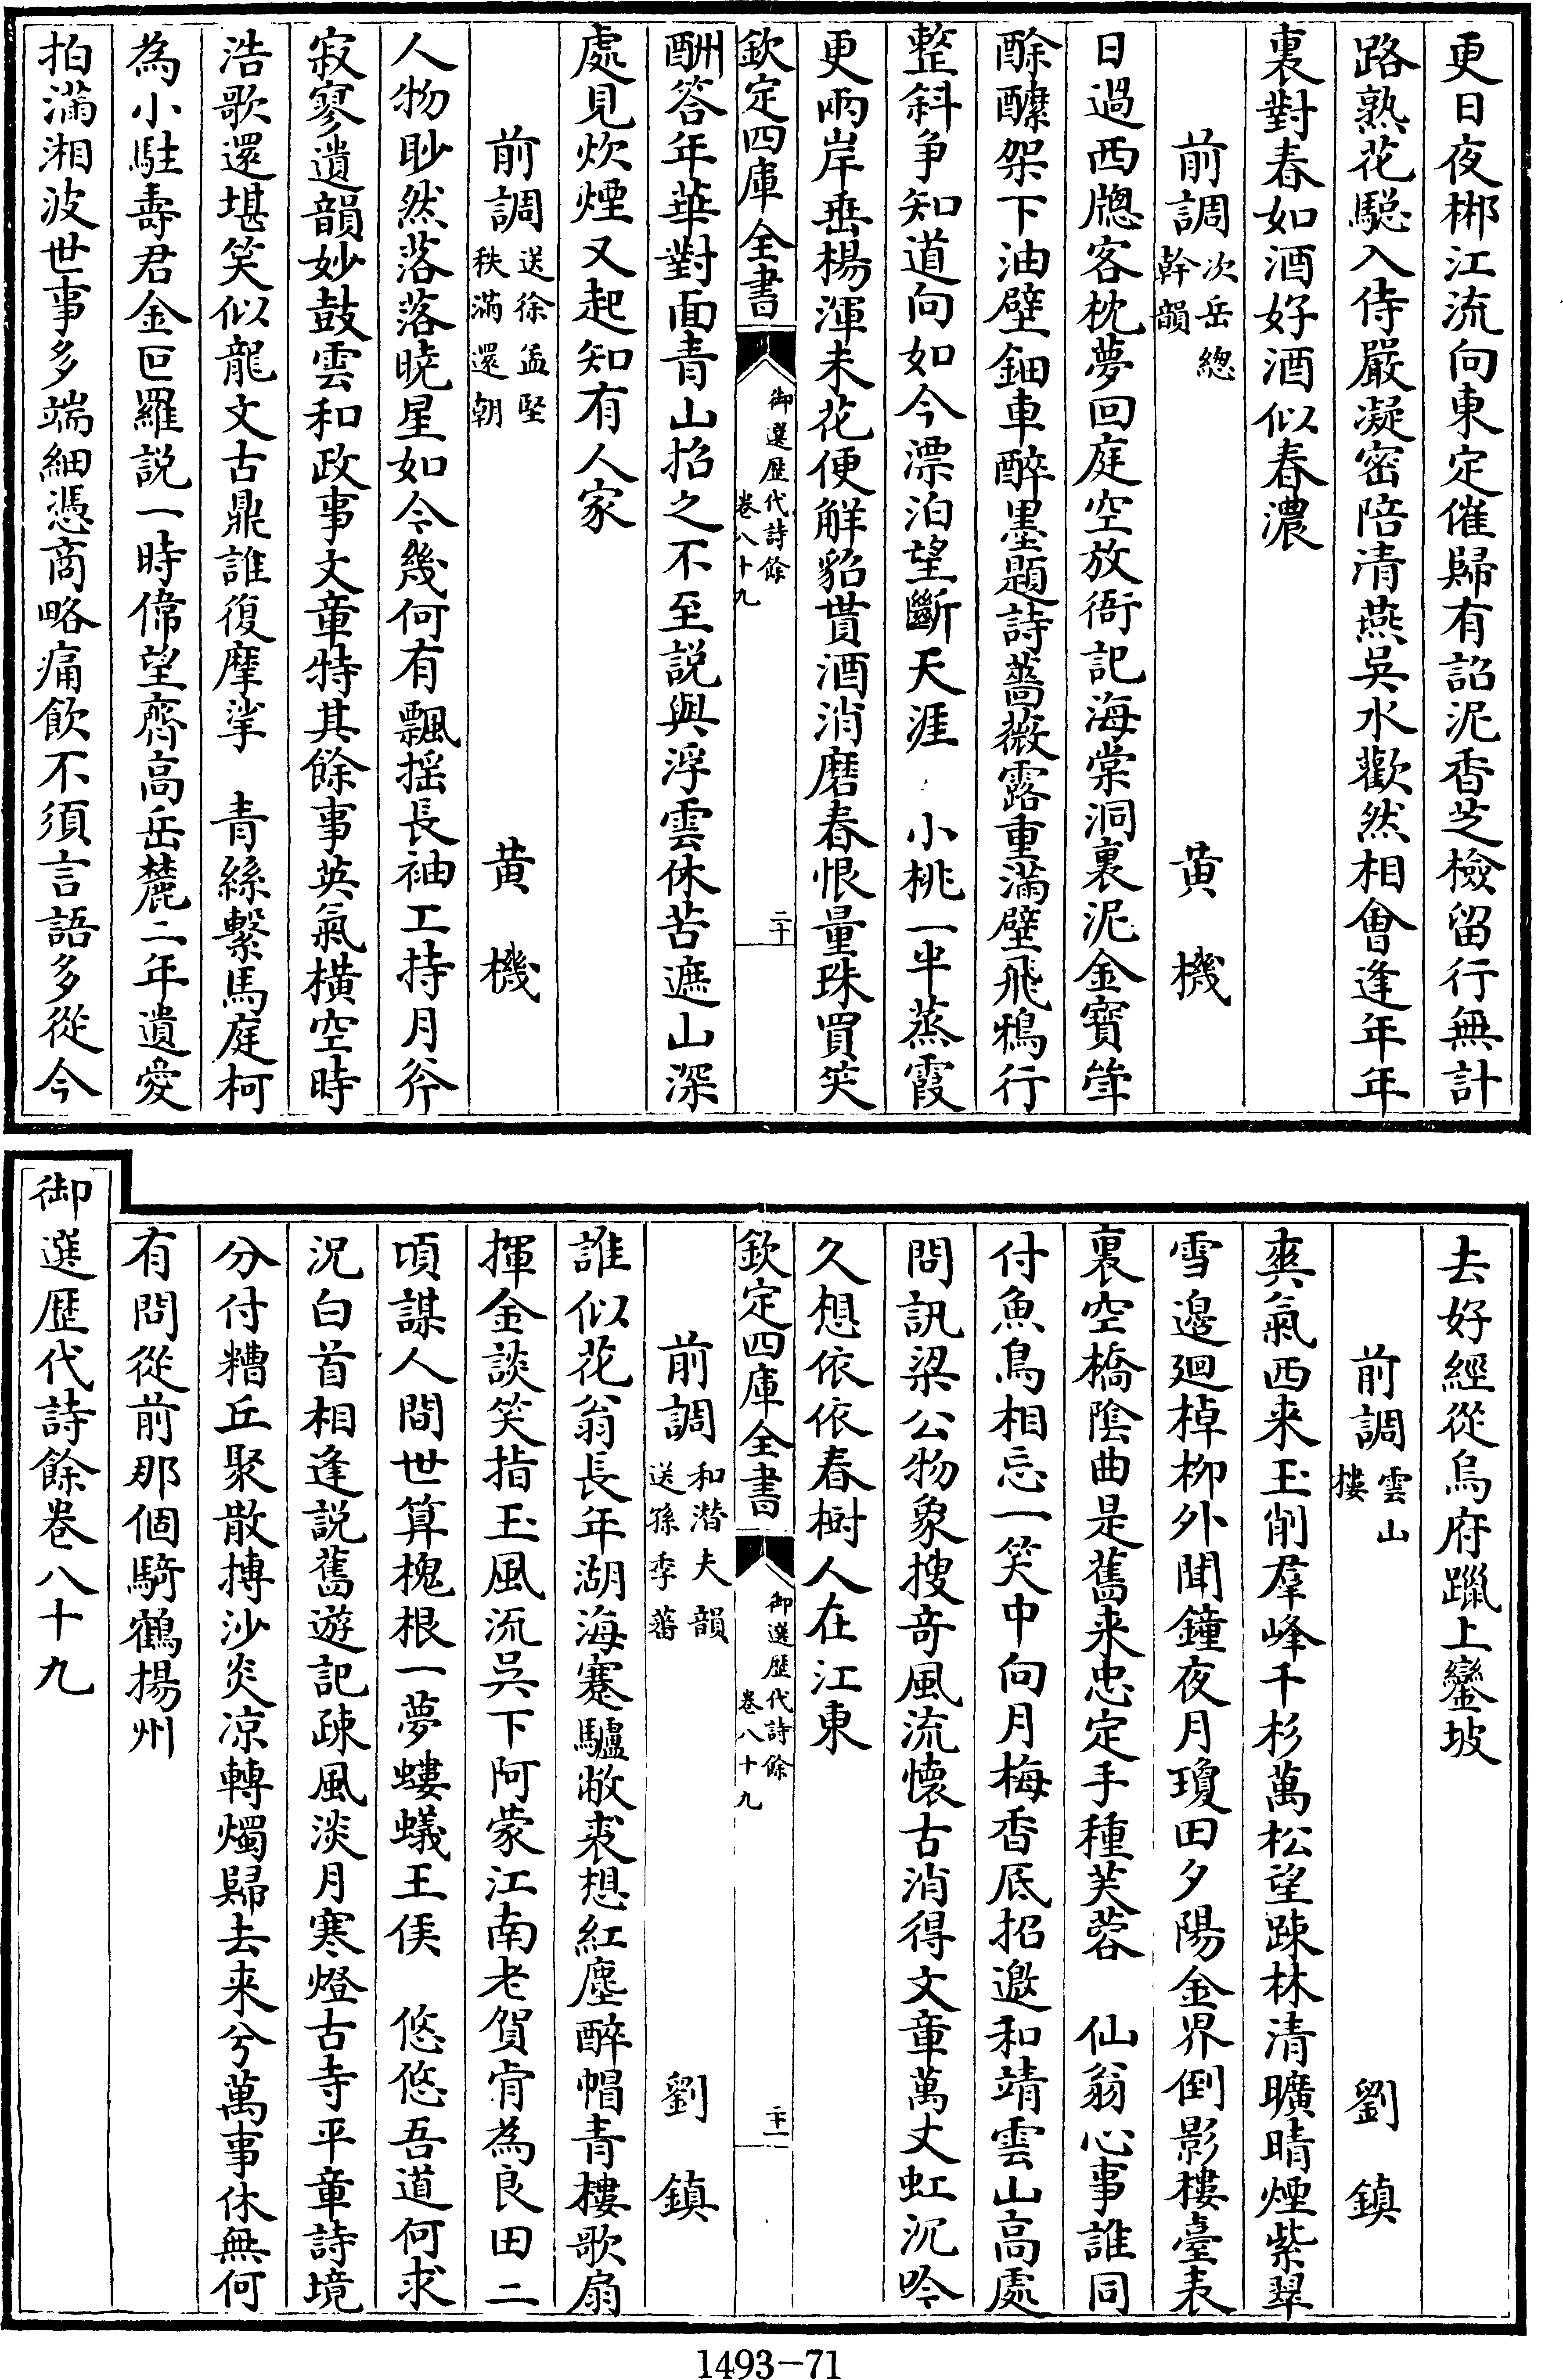 更日夜梆江流向東定催歸有詔泥香芝檢留行無計
路熟花驄入侍嚴凝密陪清燕吳水歡然相會逢年年
裏對春如酒好酒似春濃
前調次岳總幹韻 黄機
日過西牕客枕夢回庭空放衙記海棠洞裏泥金寶斝
酴醾架下油壁鈿車醉墨題詩薔薇露重滿壁飛鴉行
整斜争知道向如今漂泊望斷天涯 小桃一半蒸霞
更兩岸垂楊渾未花便解貂貰酒消磨春恨量珠買笑
欽定四庫全書 御選歴代詩餘卷八十九 二十
酬答年華對面青山招之不至説與浮雲休苦遮山深
處見炊煙又起知有人家
前調送徐孟堅秩滿還朝 黄機
人物眇然落落曉星如今幾何有飄揺長袖工持月斧
寂寥遺韻妙鼓雲和政事文章特其餘事英氣橫空時
浩歌還堪笑似龍文古鼎誰復摩挲 青絲繫馬庭柯
為小駐壽君金叵羅説一時偉望齊高岳麓二年遺愛
拍滿湘波世事多端細憑商略痛飲不須言語多從今
去好經從烏府躐上鑾坡
前調雲山樓 劉鎮
爽氣西来玉削羣峰千杉萬松望疎林清曠晴煙紫翠
雪邉廻棹柳外聞鐘夜月瓊田夕陽金界倒影樓臺表
裏空橋陰曲是舊来忠定手種芙蓉 仙翁心事誰同
付魚鳥相忘一笑中向月梅香底招邀和靖雲山高處
問訊梁公物象搜奇風流懷古消得文章萬丈虹沉吟
久想依依春樹人在江東
欽定四庫全書 御選歴代詩餘卷八十九 二十一
前調和潛夫韻送孫季蕃 劉鎮
誰似花翁長年湖海蹇驢敝裘想紅塵醉帽青樓歌扇
揮金談笑指玉風流吳下阿蒙江南老賀肯為良田二
頃謀人間世算槐根一夢螻蟻王侯 悠悠吾道何求
況白首相逢説舊遊記疎風淡月寒燈古寺平章詩境
分付糟丘聚散摶沙炎凉轉燭歸去来兮萬事休無何
有問從前那個騎鶴揚州
御選歴代詩餘卷八十九
1493-71